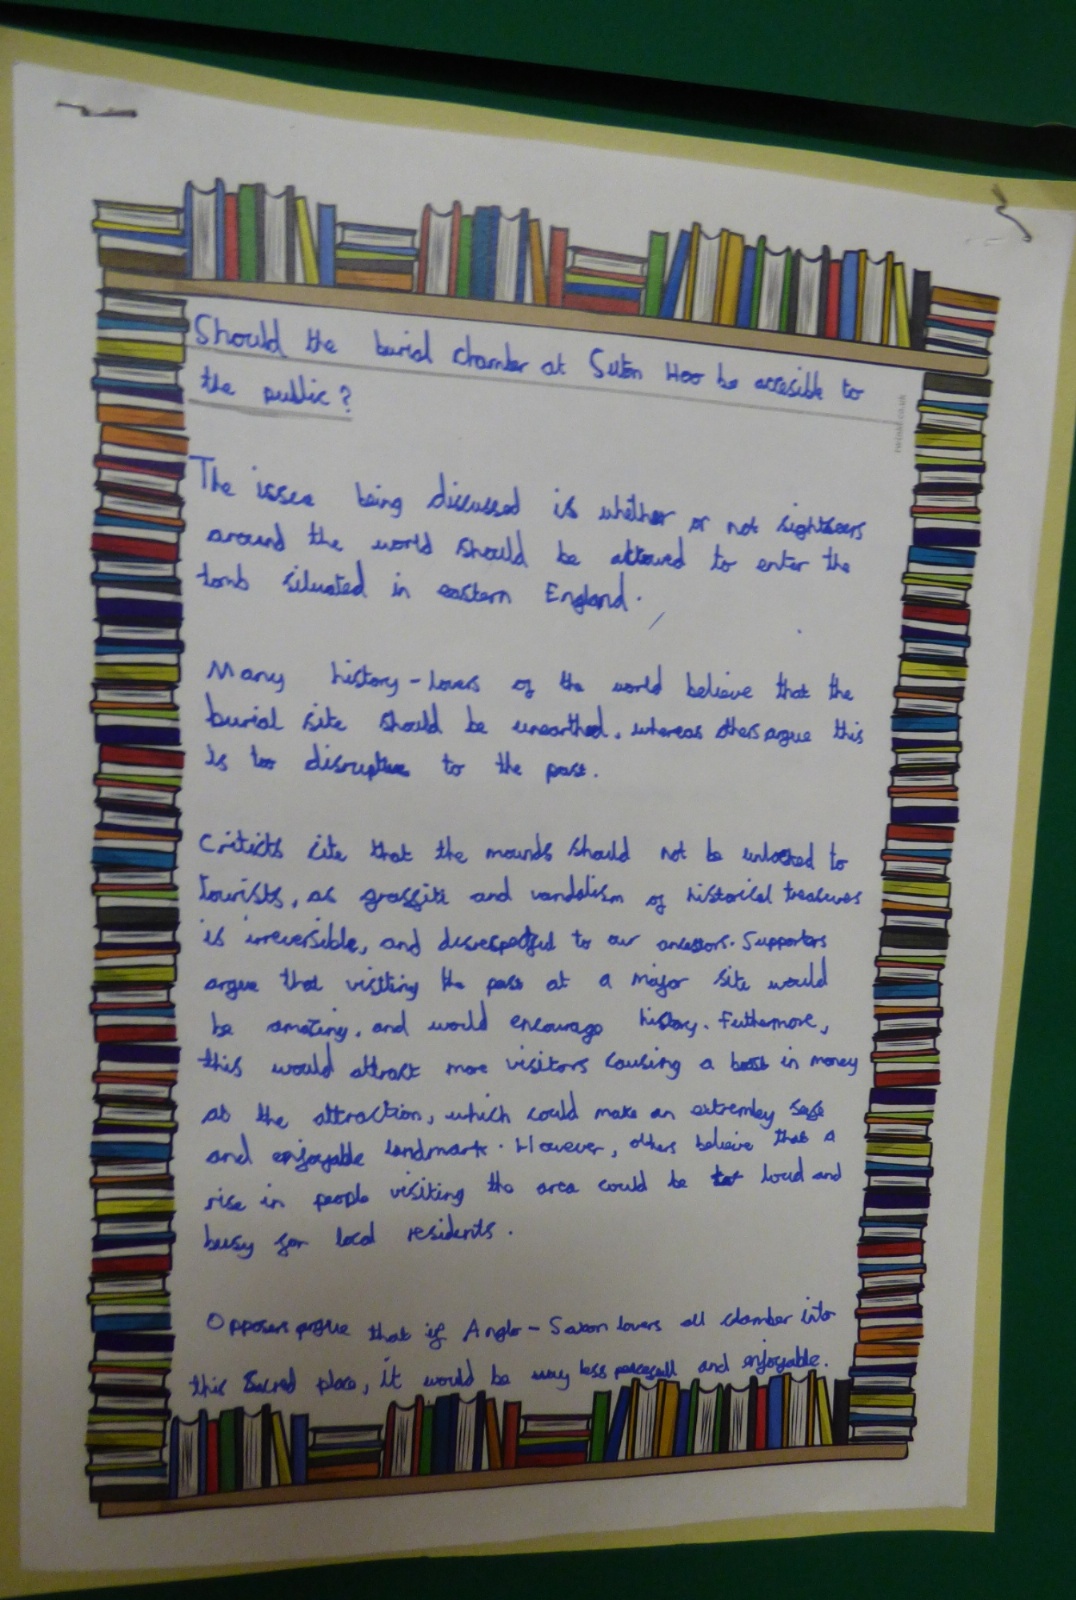 Should the burial chamber at Sutton Hoo be accesible to
the public?
twinkl.co.uk
The issue being discussed is whether or not sightseers
around the world should be allowed to enter the
tomb situated in eastern England.
Many history-lovers of the world believe that the
burial site should be unearthed, whereas others argue this
is too disruptive to the past.
Criticts cite that the mounds should not be unlocked to
tourists, as graffiti and vandalism of historical treasures
is irreversible, and disrespectful to our ancestors. Supporters
argue that visiting the past at a major site would
be amazing, and would encourage history. Futhermore,
this would attract more visitors causing a boost in money
at the attraction, which could make an extremley safe
and enjoyable landmark. However, others believe that a
rise in people visiting the area could be loud and
busy for local residents.
Opposers argue that if Anglo-Saxon lovers all clamber into
this sacred place, it would be way less peacefull and enjoyable.